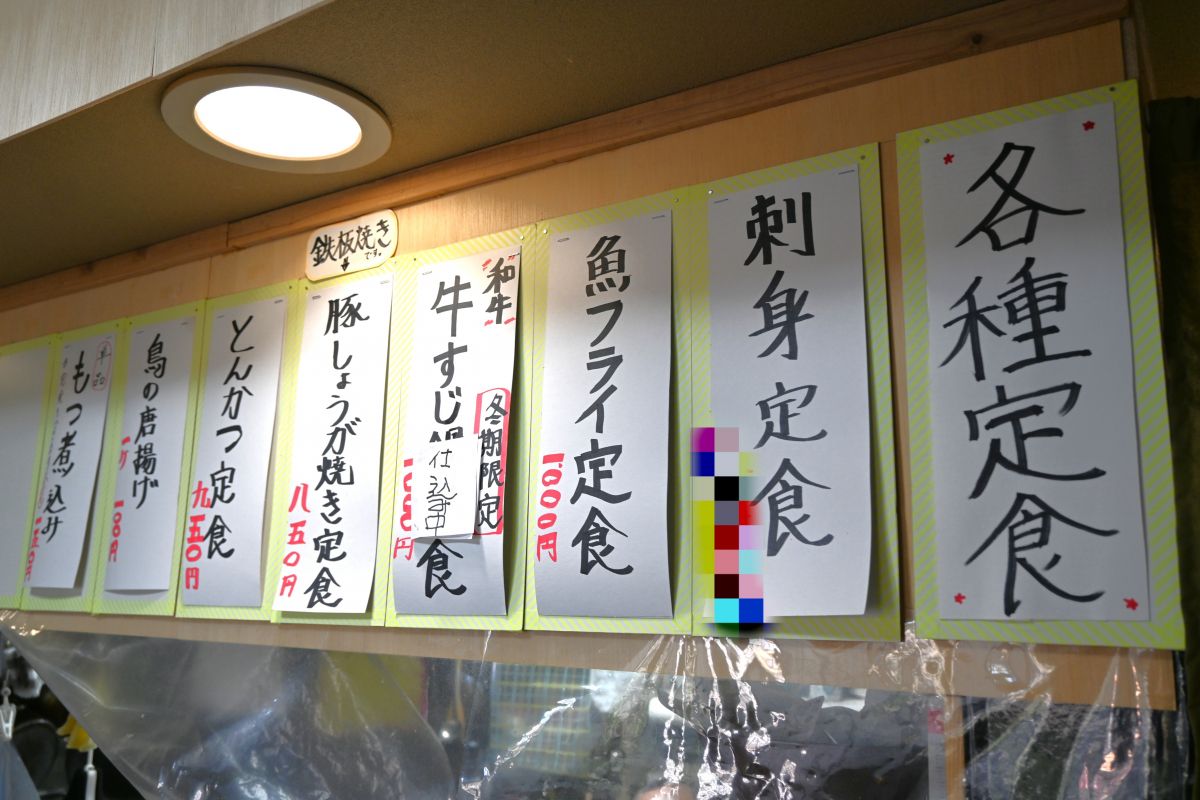 各種定食
刺身定食
魚フライ定食
1000円
和牛
牛すじ
仕込中
食
冬期限定
1000円
鉄板焼き
です。
豚しょうが焼き定食
八五〇円
とんかつ定食
九五〇円
鳥の唐揚げ
単品
もつ煮込み